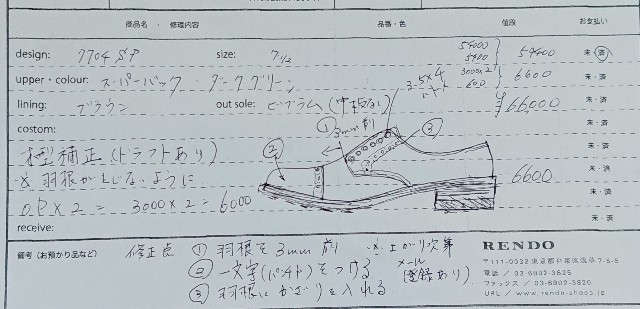 商品名 ・ 修理内容 品番・色 値段 お支払い
design: 7704 SP size: 7 1/2 54000 5400 59400 未・済
upper・colour: スーパーバック ダークグリーン 3.5×4 3000×2 600 6600 未・済
lining: ブラウン out sole: ビブラム(中板なし) ¥66,000 未・済
costom: ① 3mm削 未・済
木型補正(ドラフトあり) ② ③ 未・済
※羽根がとじないように 6600 未・済
O.P×2= 3000×2=6000 未・済
receive: 未・済
備考(お預かり品など) 修正点 ① 羽根を3mm削 ※上がり次第
② 一文字(パンチト)をつける メール(登録あり)
③ 羽根にかざりを入れる
RENDO
〒111-0032 東京都台東区浅草7-5-5
電話 / 03-6802-3825
ファックス / 03-6802-3820
URL / www.rendo-shoes.jp